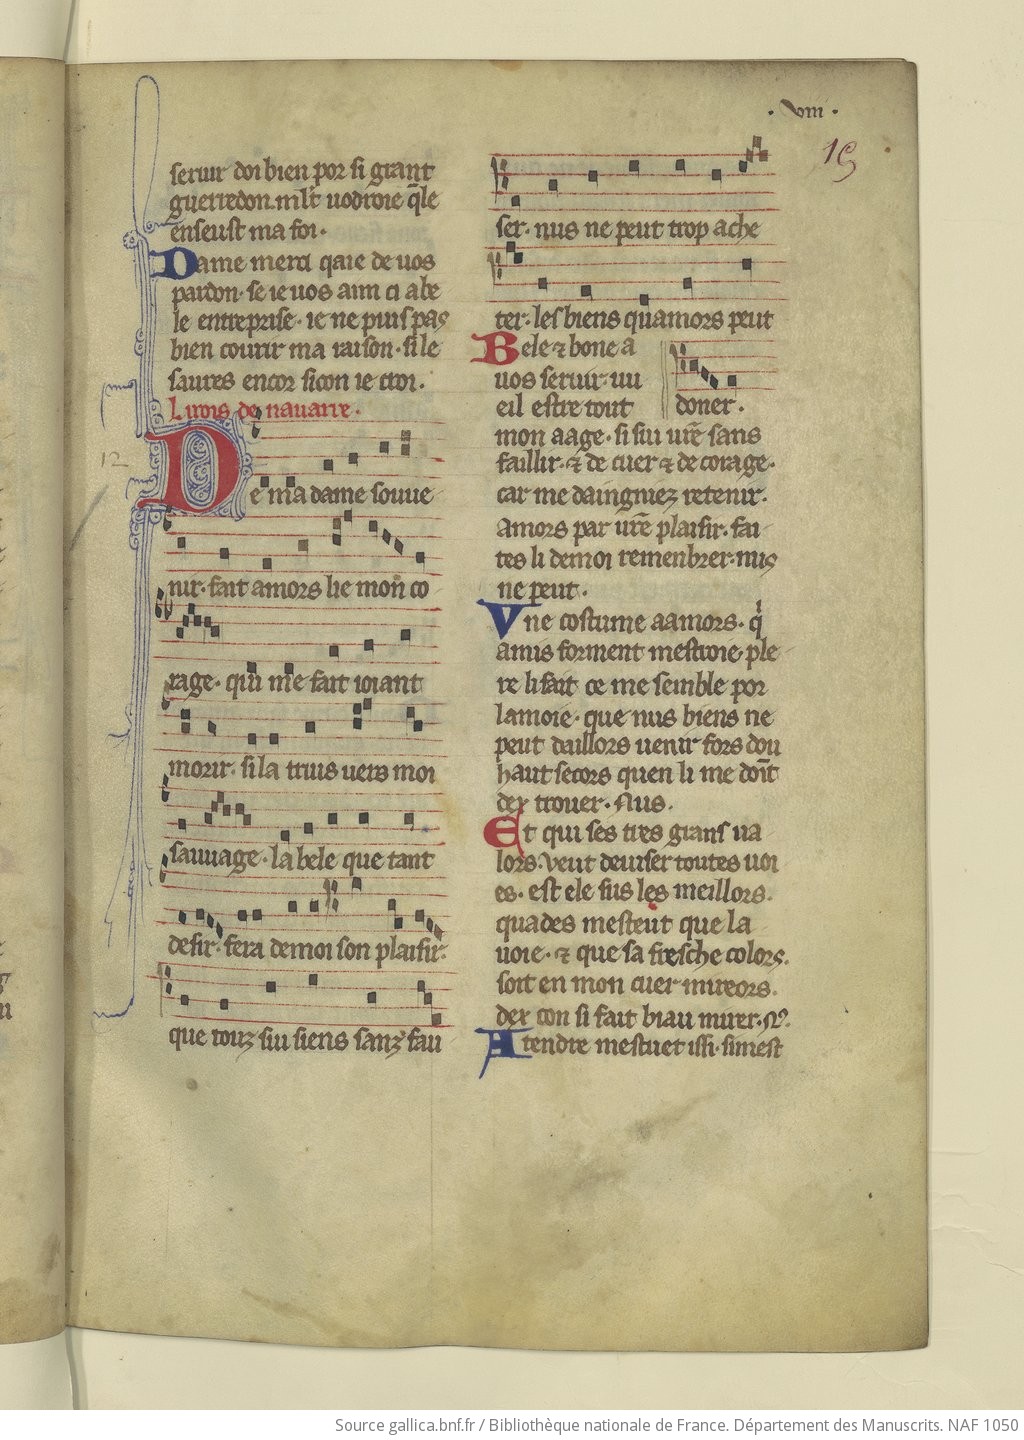 · viii ·
19
seruir doi bien por si grant
guerredon. mlt uodroie qle
enseust ma foi ·
Dame merci qaie de uos
pardon · se ie uos aim ci a be
le entreprise · ie ne puis pas
bien courir ma raison · si le
saures encor sicon ie croi .
Li rois de nauarre ·
12
De ma dame souue
nir · fait amors lie mon co
rage · qui me fait ioiant
morir · si la truis uers moi
sauuage · la bele que tant
desir · fera de moi son plaisir ·
que touz sui siens sanz fau
ser · nus ne peut trop ache
ter · les biens quamors peut
doner ·
Bele ⁊ bone a
uos seruir uu
eil estre tout
mon aage · si sui ure sans
faillir · ⁊ de cuer ⁊ de corage ·
car me daingniez retenir ·
amors par ure plaisir · fai
tes li de moi remenbrer · nus
ne peut ·
Vne costume a amors · q
amis forment mestroie · ple
re li fait ce me semble por
lamoie · que nus biens ne
peut daillors uenir fors dou
haut secors quen li me doit
dex trouer · Nus .
Et qui ses tres grans ua
lors · veut deuiser toutes uoi
es · est ele sus les meillors ·
quades mesteut que la
uoie · ⁊ que sa fresche colors ·
soit en mon cuer mireors ·
dex con si fait biau mirer · N9 ·
Atendre mestuet issi · si mest
Source gallica.bnf.fr / Bibliothèque nationale de France. Département des Manuscrits. NAF 1050